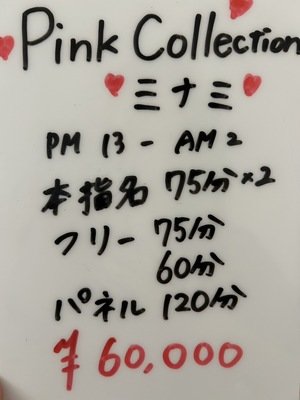 Pink Collection
ミナミ
PM 13 - AM 2
本指名 75分×2
フリー 75分
60分
パネル 120分
¥60,000